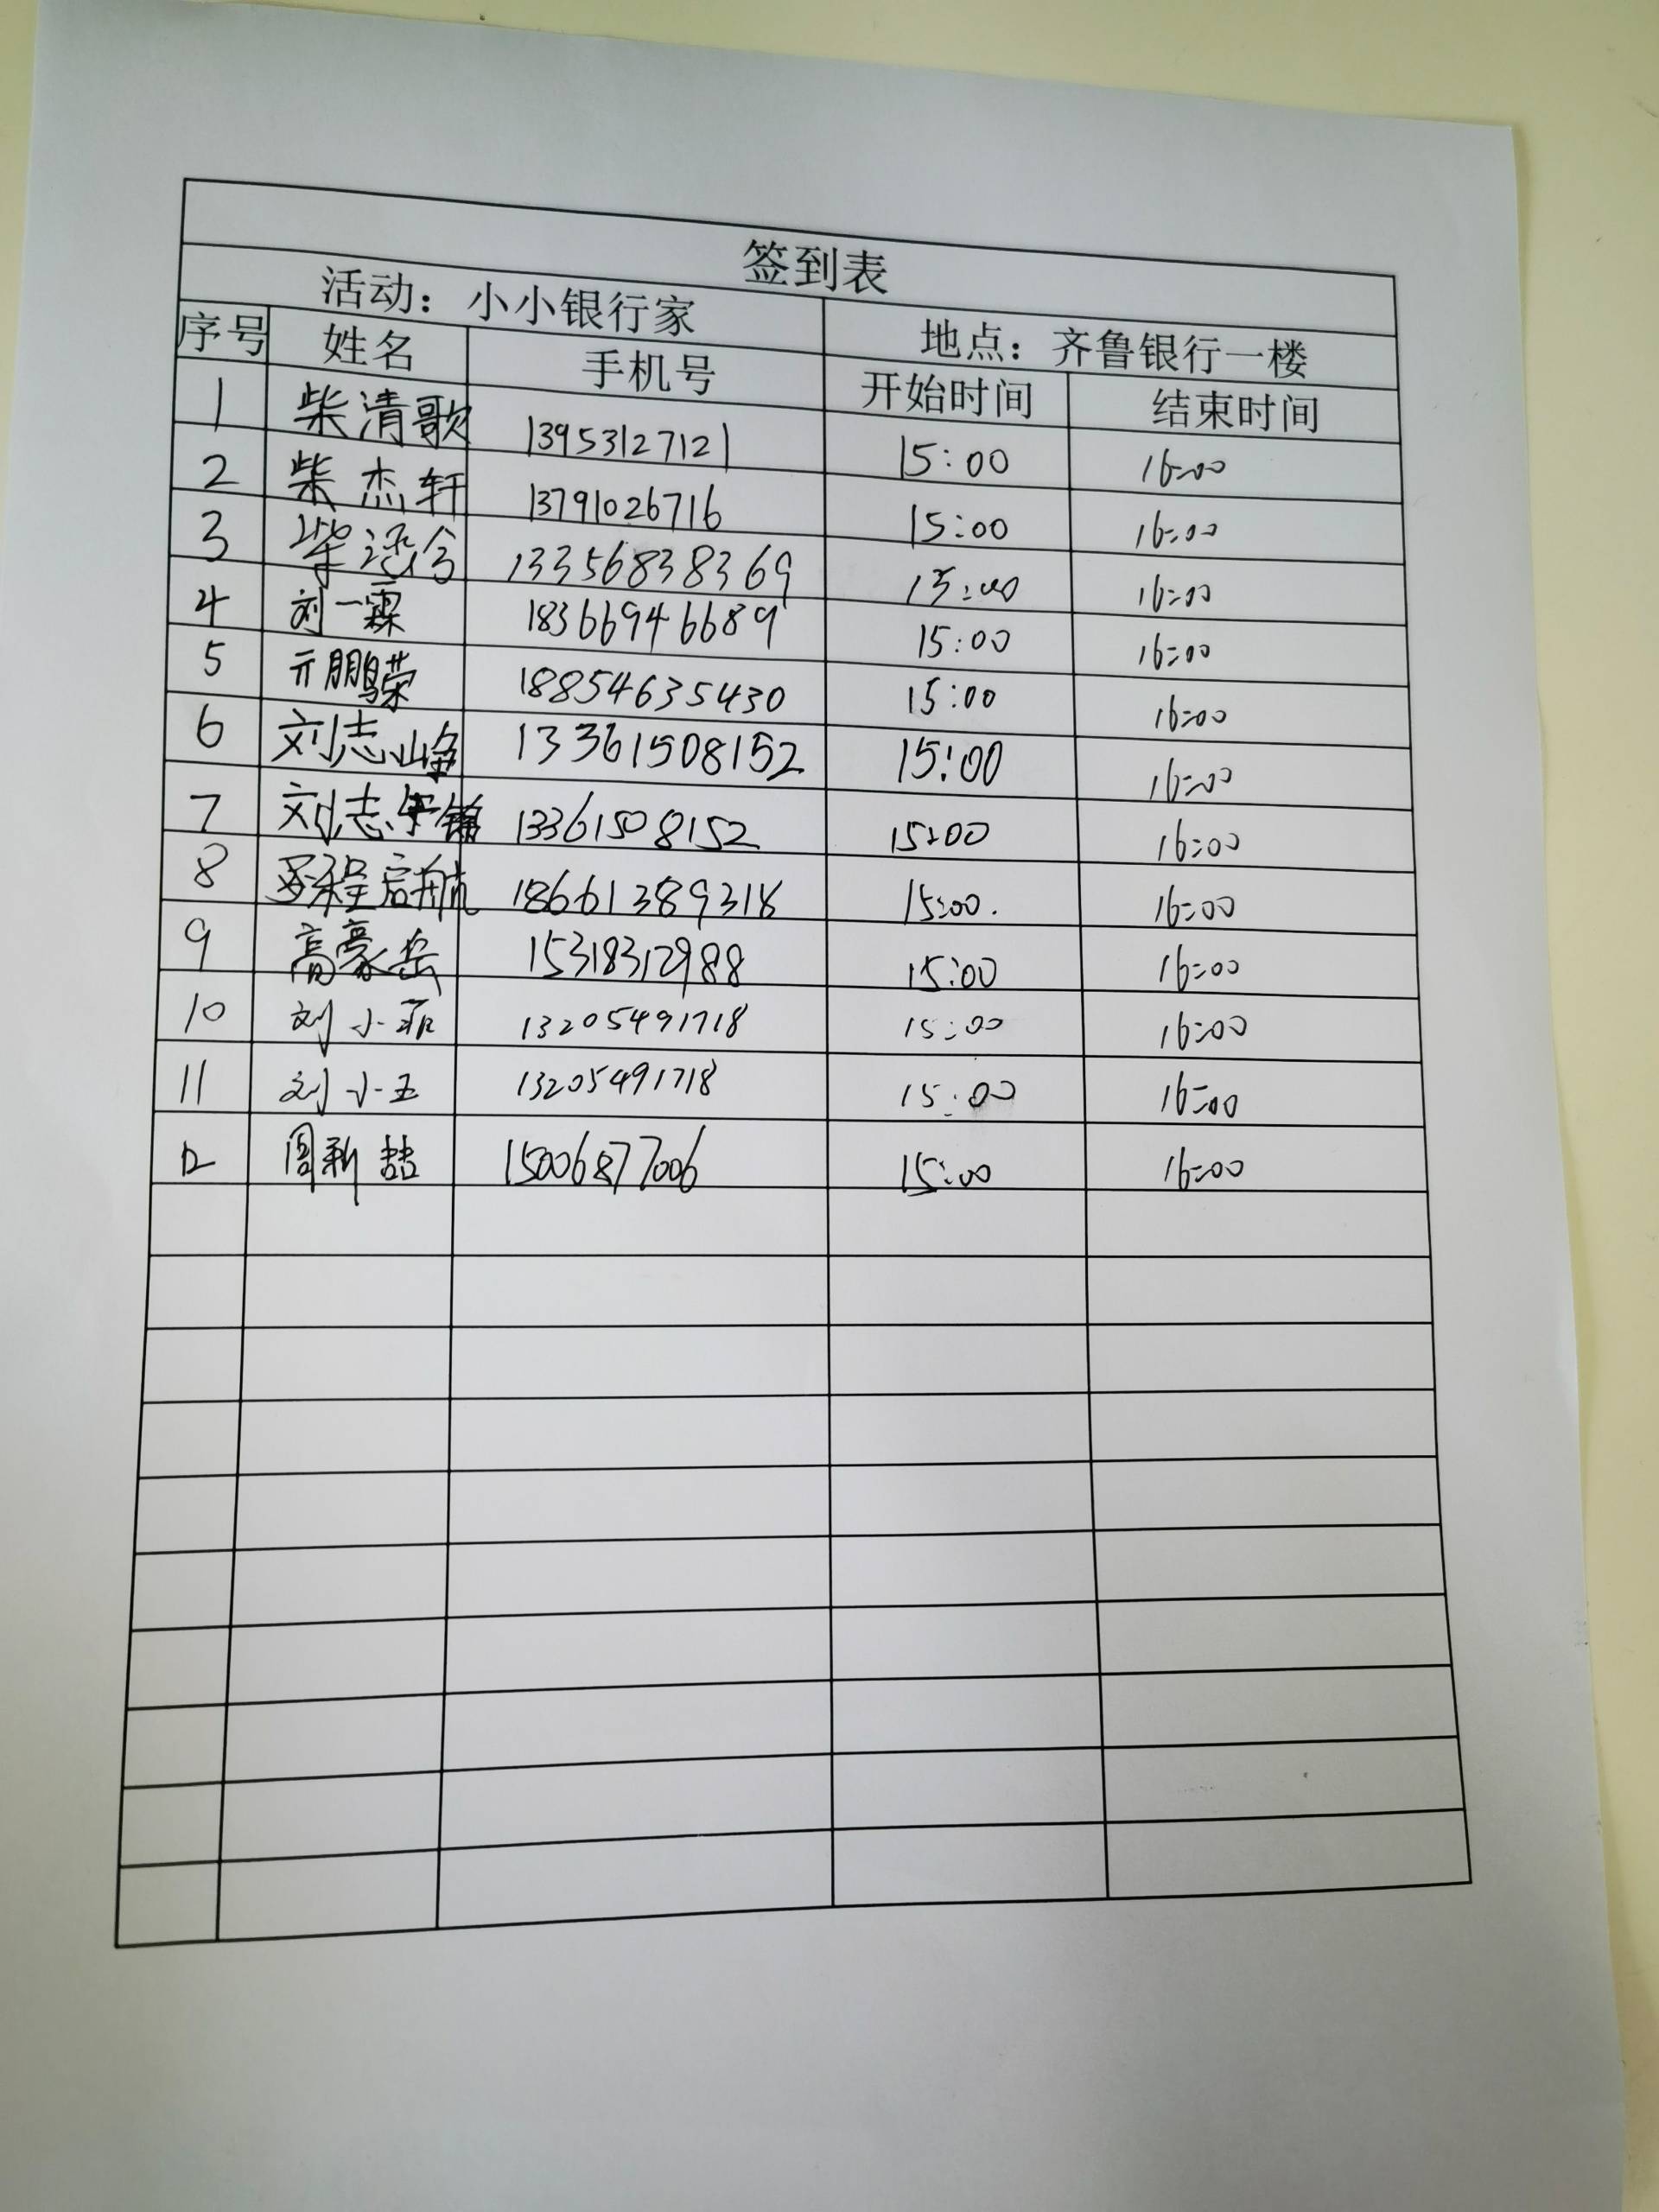 签到表
活动：小小银行家 地点：齐鲁银行一楼
序号 姓名 手机号 开始时间 结束时间
1 柴清歌 13953127121 15:00 16:00
2 柴杰轩 13791026716 15:00 16:00
3 柴 13356838369 15:00 16:00
4 刘一霖 18366946689 15:00 16:00
5 亓鹏荣 18854635430 15:00 16:00
6 刘志峰 13361508152 15:00 16:00
7 刘志 13361508152 15:00 16:00
8 程启航 18661389318 15:00. 16:00
9 高豪岳 15318312988 15:00 16:00
10 刘小菲 13205491718 15:00 16:00
11 刘小玉 13205491718 15:00 16:00
12 周新喆 15006877006 15:00 16:00